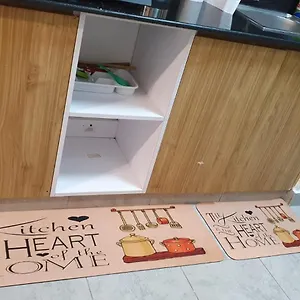 Kitchen
HEART
of the
HOME
My
Kitchen
HEART
of the
HOME